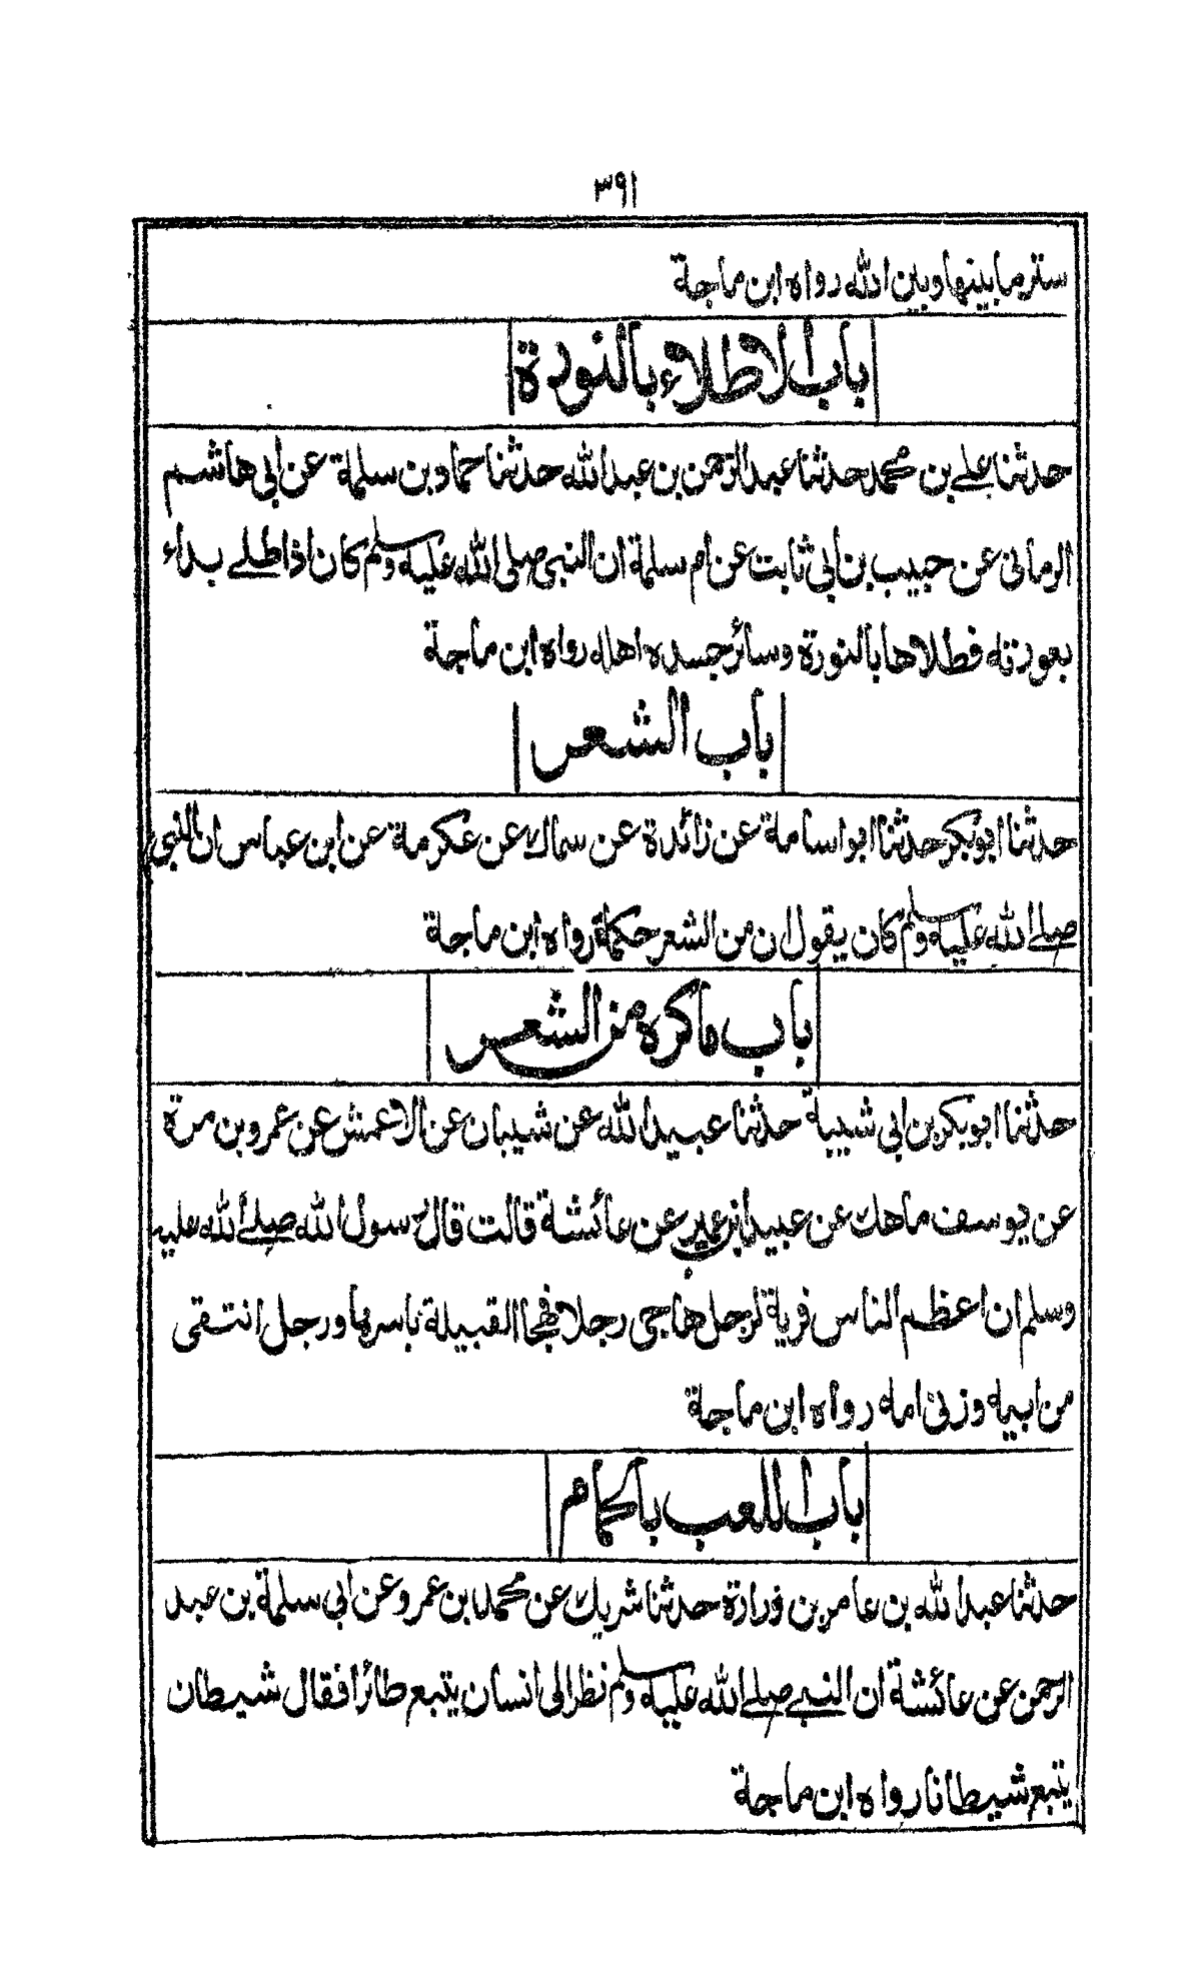 ٣٩١
ستر ما بينها وبين الله رواه ابن ماجة
باب الاطلاء بالنورة
حدثنا علي بن محمد حدثنا عبد الرحمن بن عبد الله حدثنا حماد بن سلمة عن ابي هاشم
الرماني عن حبيب بن ابي ثابت عن ام سلمة ان النبي صلى الله عليه وسلم كان اذا طلے بداء
بعورته فطلاها بالنورة وسائر جسده اهله رواه ابن ماجة
باب الشعر
حدثنا ابو بكر حدثنا ابو اسامة عن زائدة عن سماك عن عكرمة عن ابن عباس ان النبي
صلے الله عليه وسلم كان يقول ان من الشعر حكمة رواه ابن ماجة
باب ما كره من الشعر
حدثنا ابو بكر بن ابي شيبة حدثنا عبيد الله عن شيبان عن الاعمش عن عمرو بن مرة
عن يوسف ماهك عن عبيد ابن عمير عن عائشة قالت قال رسول الله صلے الله عليه
وسلم ان اعظم الناس فرية لرجل هاجى رجلا فهجا القبيلة باسرها ورجل انتقى
من ابيه وزنى امه رواه ابن ماجة
باب اللعب بالحمام
حدثنا عبد الله بن عامر بن زرارة حدثنا شريك عن محمد ابن عمرو عن ابي سلمة بن عبد
الرحمن عن عائشة ان النبے صلے الله عليه وسلم نظر الى انسان يتبع طائرا فقال شيطان
يتبع شيطانا رواه ابن ماجة